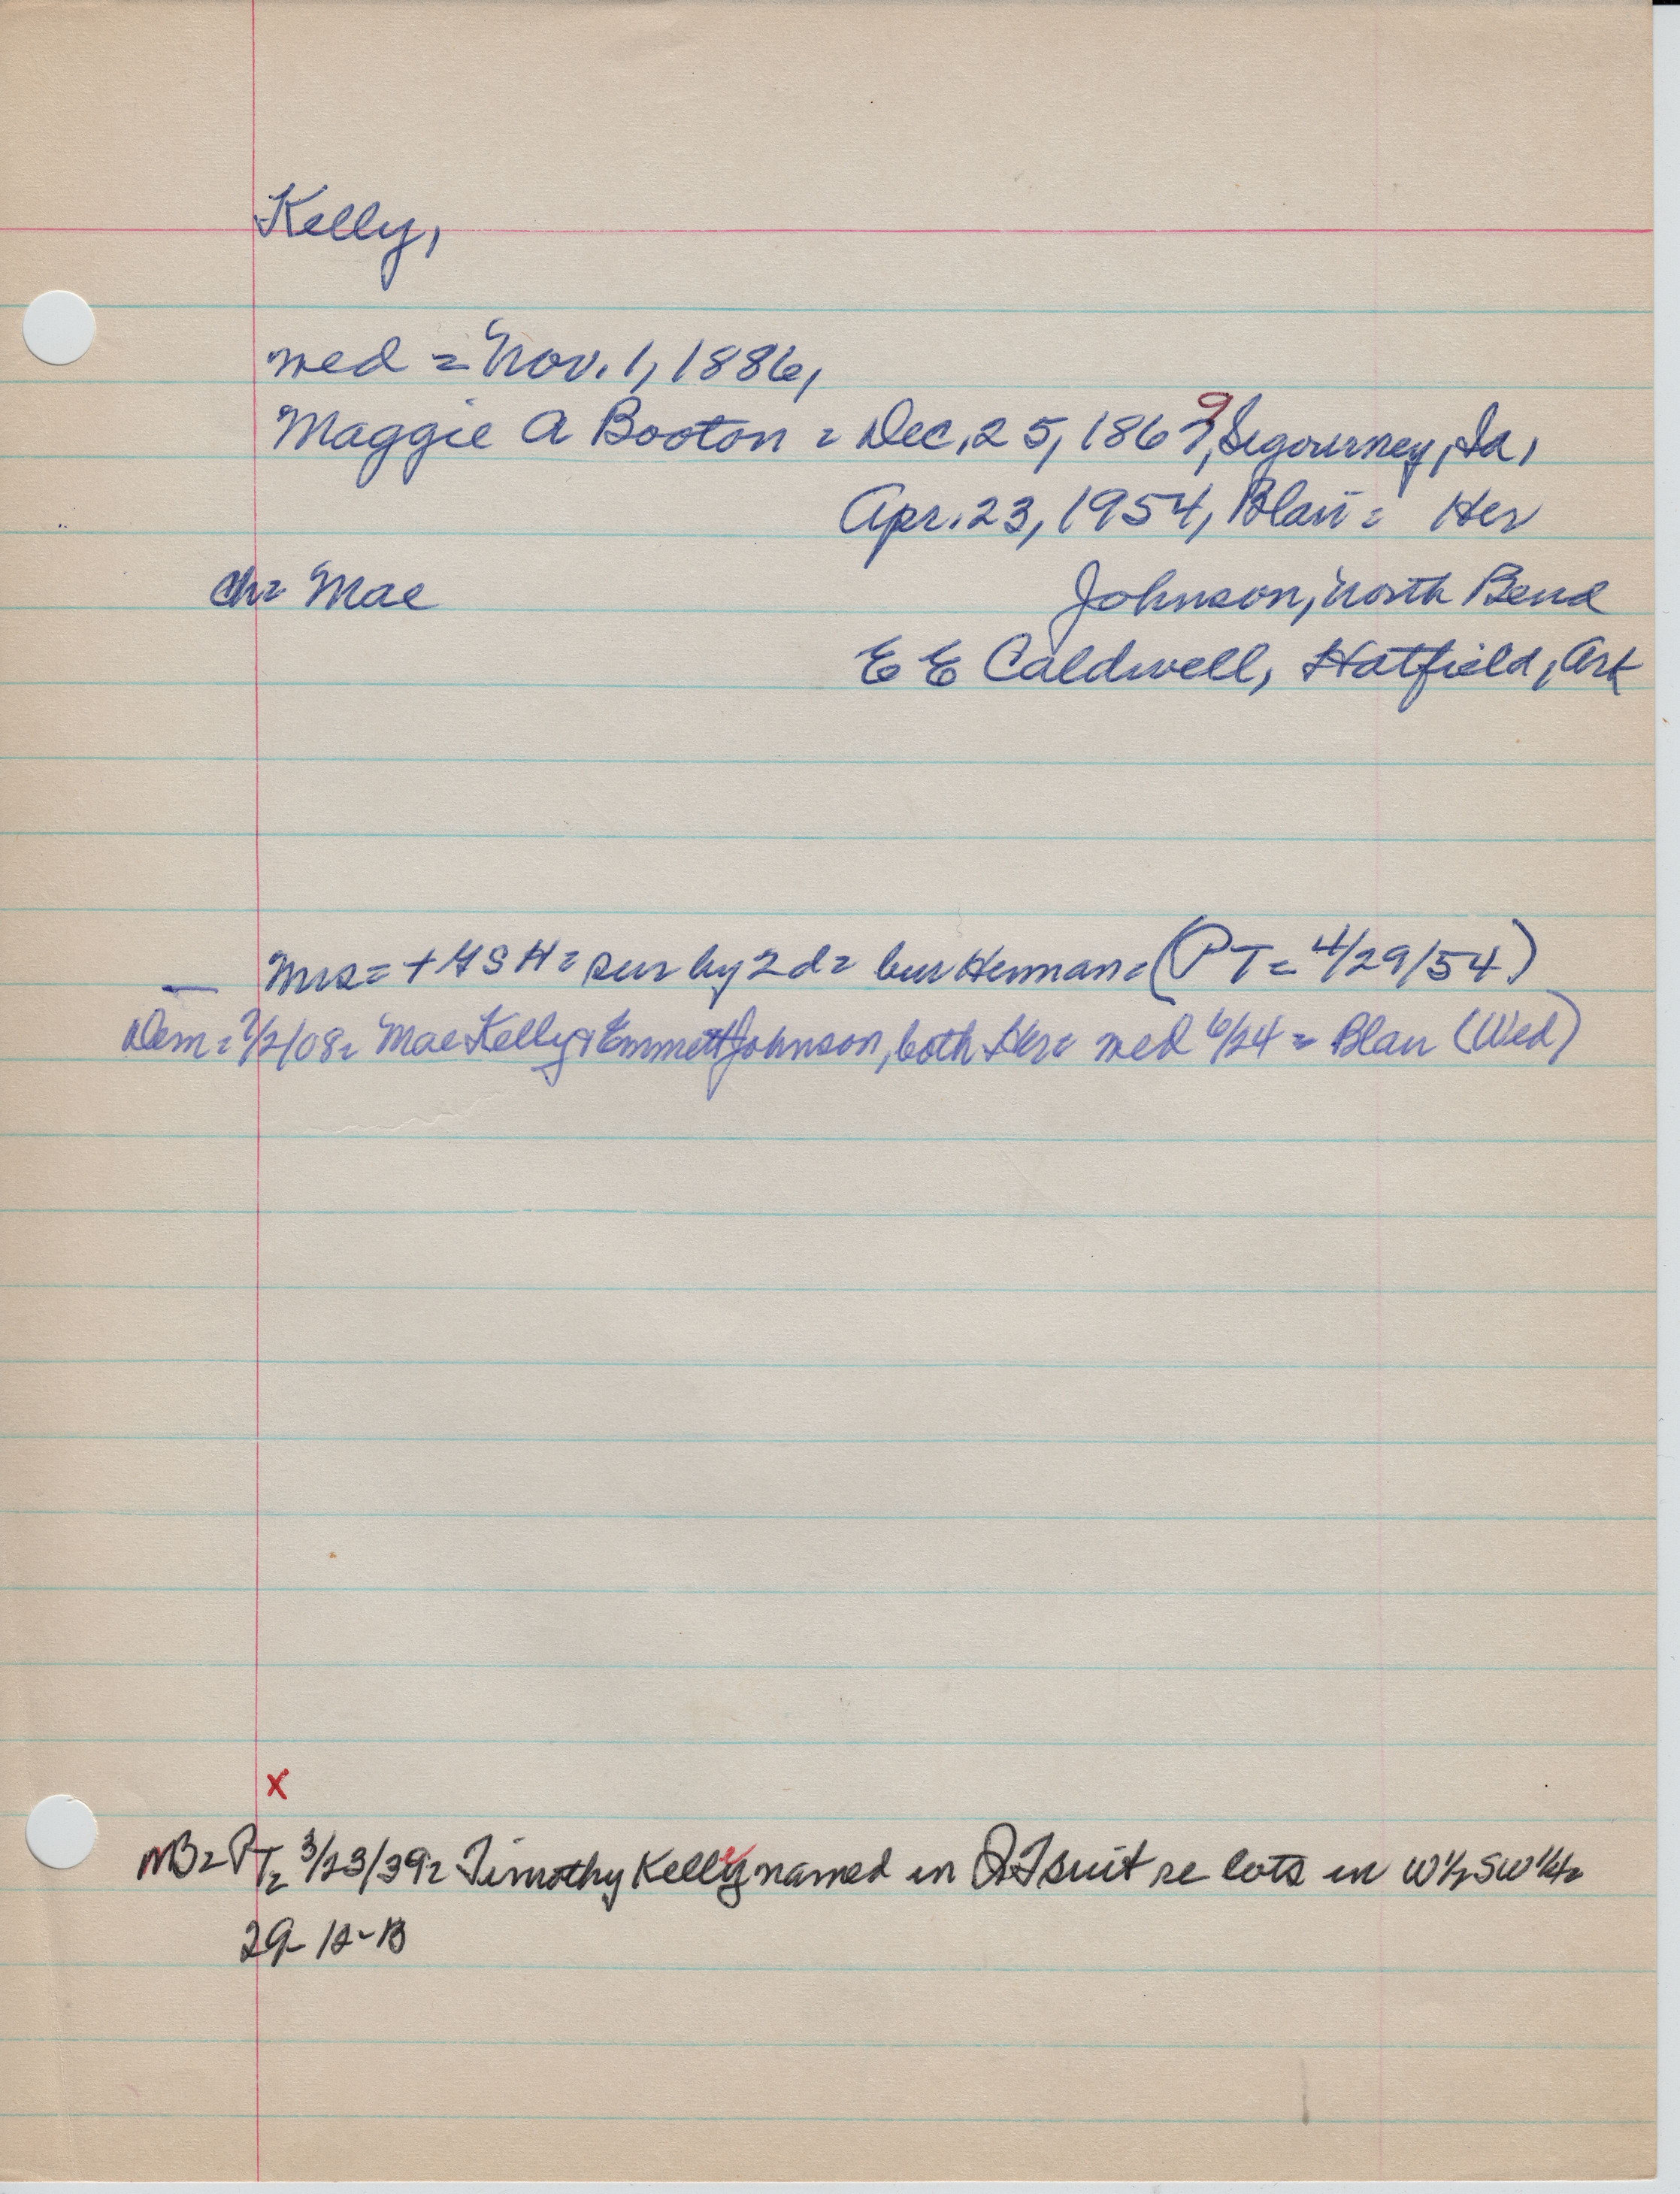 Kelly,
wed = Nov. 1, 1886,
Maggie A Booton = Dec. 25, 1869, Segourney, Ia,
Apr. 23, 1954, Blair = Her
ch = Mae Johnson, North Bend
E E Caldwell, Hatfield, Ark
— Mrs = + GSH = sur by 2 d = bur Herman = (PT = 4/29/54)
Dem = 7/2/08 = Mae Kelly & Emmett Johnson, both Her = wed 6/24 = Blair (Wed)
x
NB = PT = 3/23/39 = Timothy Kelly named in QT suit re lots in W½ SW¼ =
29-